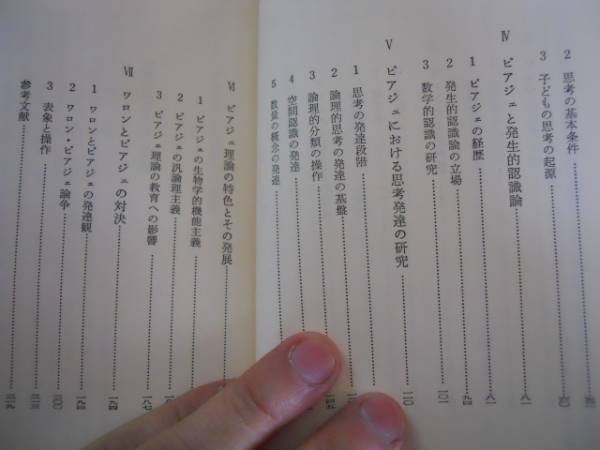 2 思考の基本条件
3 子どもの思考の起源
Ⅳ ピアジェと発生的認識論 八一
1 ピアジェの経歴 八一
2 発生的認識論の立場 九四
3 数学的認識の研究 一〇一
Ⅴ ピアジェにおける思考発達の研究 一一〇
1 思考の発達段階
2 論理的思考の発達の基盤
3 論理的分類の操作
4 空間認識の発達
5 数量の概念の発達
Ⅵ ピアジェ理論の特色とその発展
1 ピアジェの生物学的機能主義
2 ピアジェの汎論理主義
3 ピアジェ理論の教育への影響 一八七
Ⅶ ワロンとピアジェの対決 一九四
1 ワロンとピアジェの発達観 一九四
2 ワロン・ピアジェ論争 二〇〇
3 表象と操作
参考文献